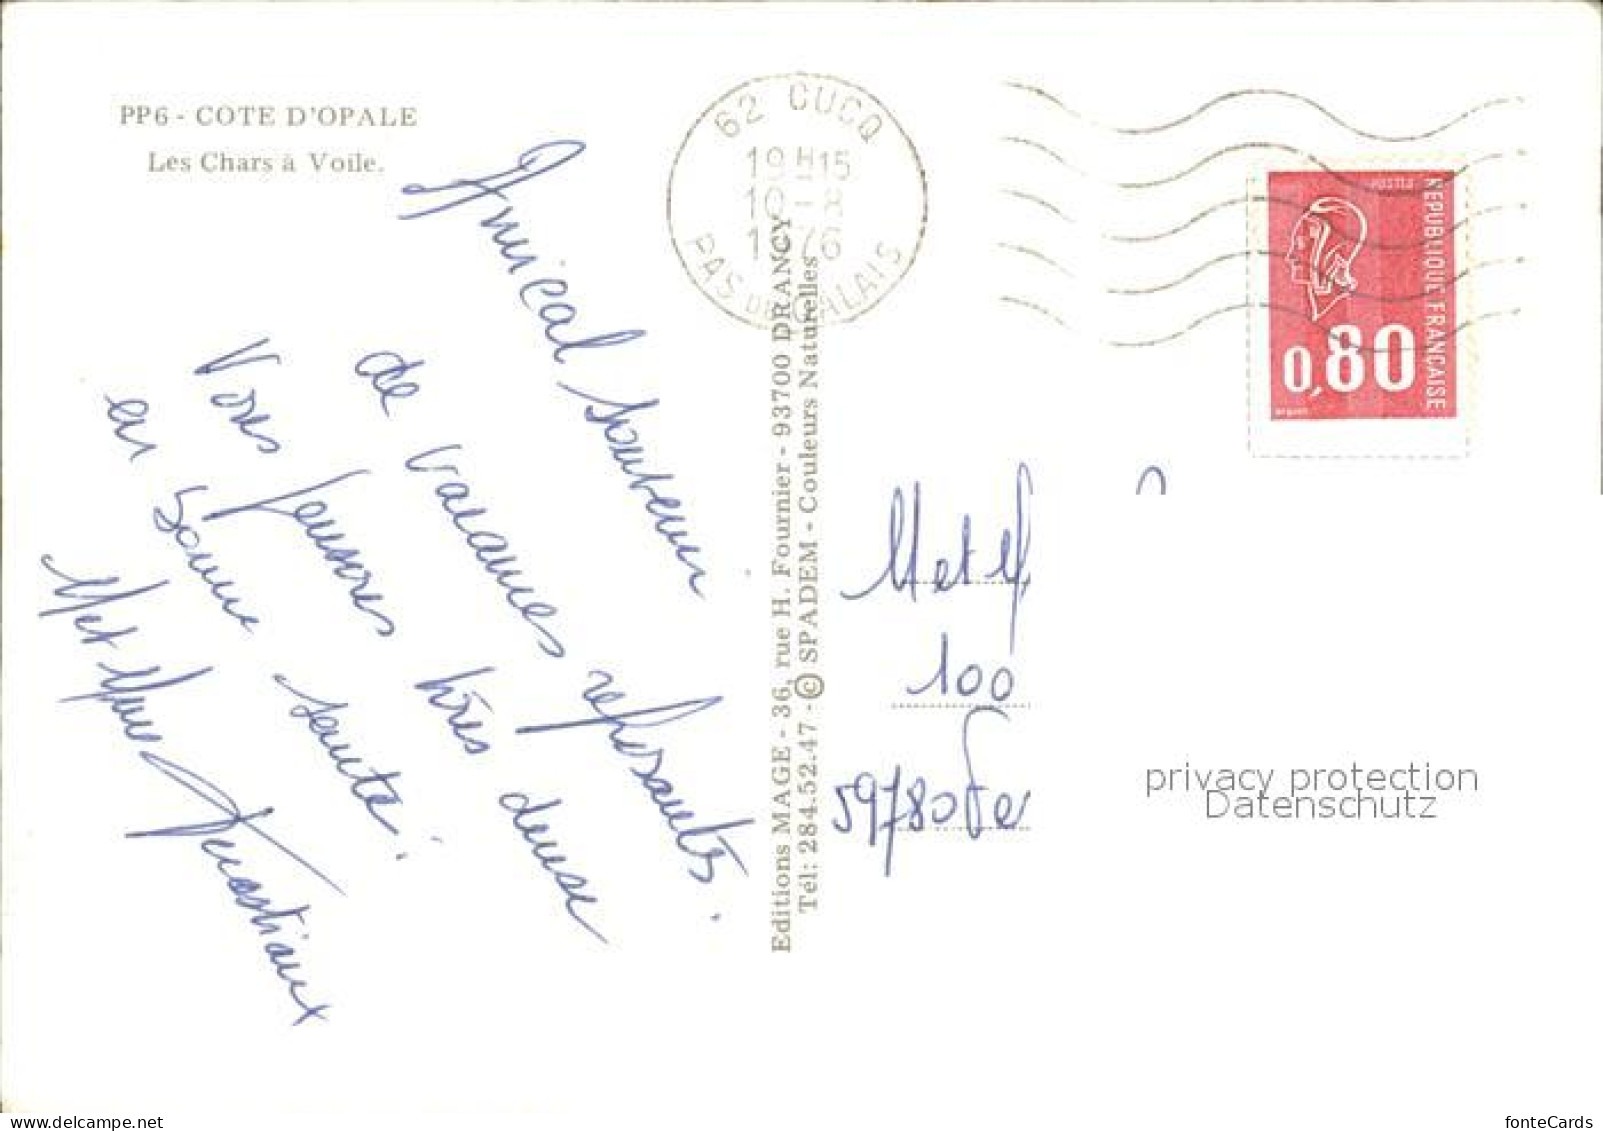 PP6 - COTE D'OPALE
Les Chars à Voile.
62 CUCQ
19H15
10 - 8
1976
PAS DE CALAIS
POSTES
REPUBLIQUE FRANÇAISE
0,80
Amical Souvenir
de vacances reposantes.
Vous très
en bonne santé.
M et Mme
Editions MAGE - 36, rue H. Fournier - 93700 DRANCY
Tél.: 284.52.47 - © SPADEM - Couleurs Naturelles
M et M
100
59780
privacy protection
Datenschutz
fonteCards